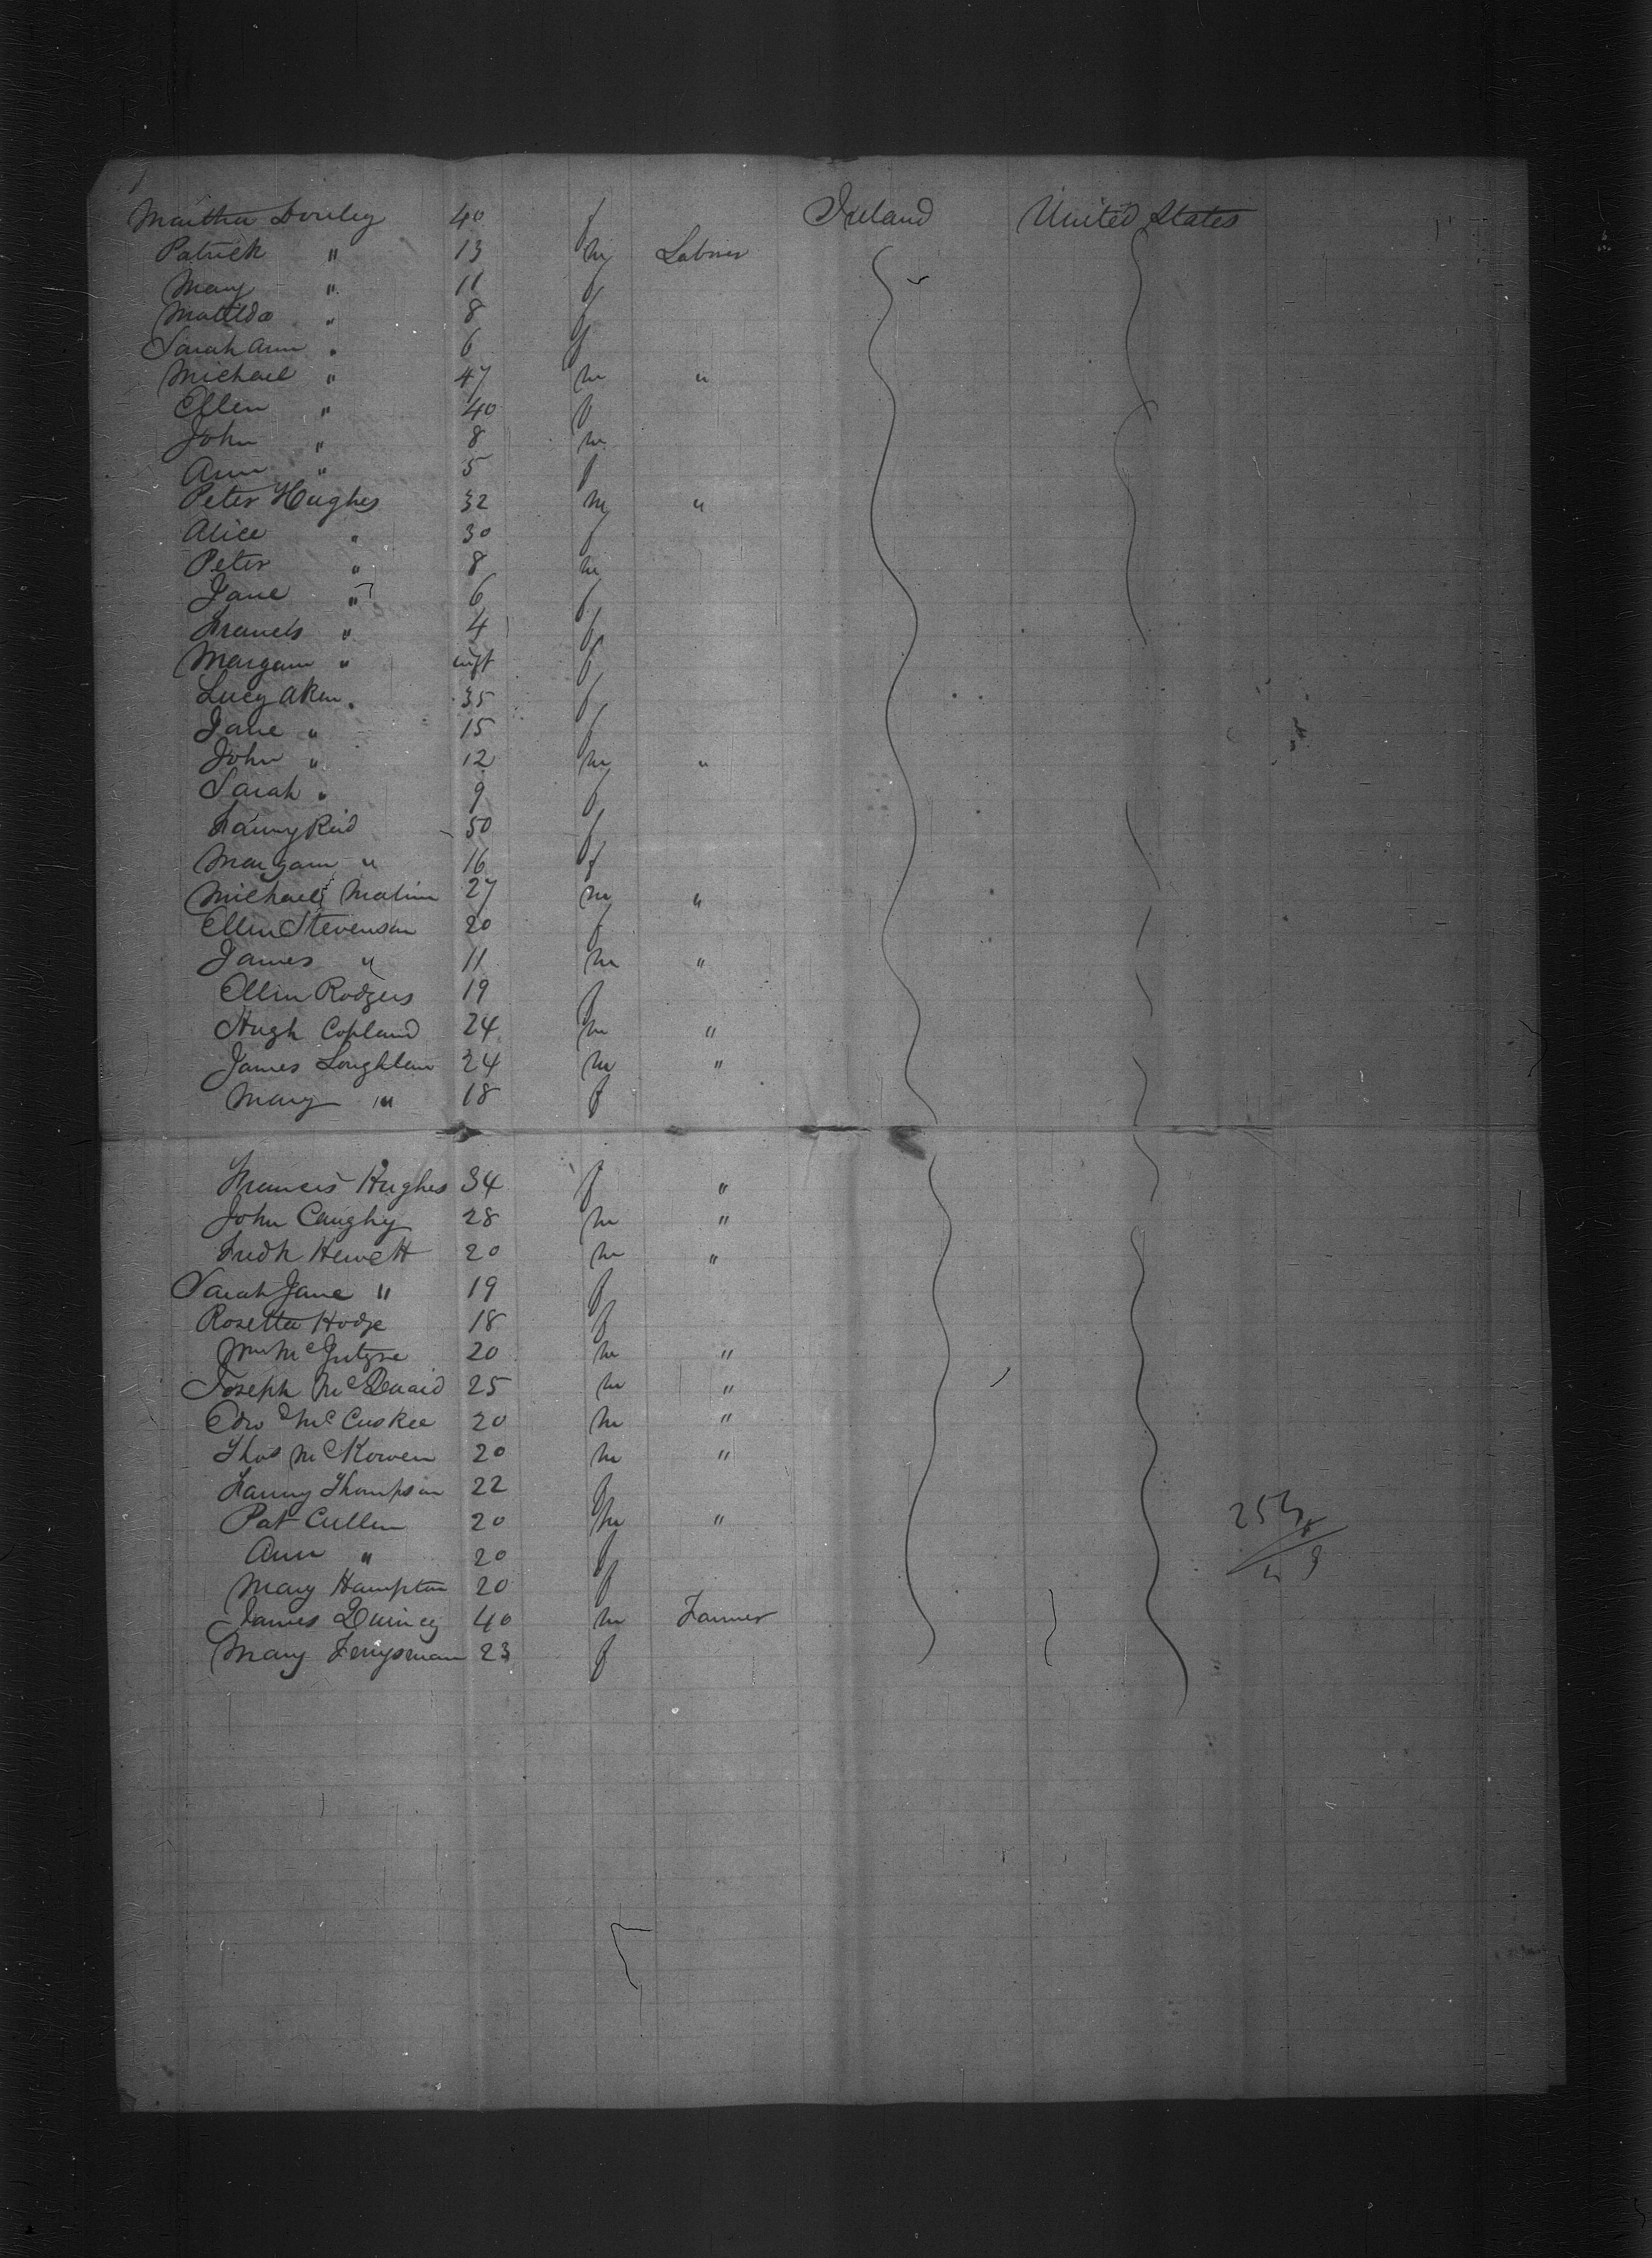 Martha Donley 40 f Ireland United States
Patrick " 13 m Labourer
Mary " 11 f
Matilda " 8 f
Sarah Ann " 6 f
Michael " 47 m "
Ellen " 40 f
John " 8 m
Ann " 5 f
Peter Hughes 32 m "
Alice " 30 f
Peter " 8 m
Jane " 6 f
Francis " 4 f
Margam " inft f
Lucy Aken 35 f
Jane " 15 f
John " 12 m "
Sarah " 9 f
Fanny Reid 50 f
Margam " 16 f
Michael 27 m "
Ellen Stevenson 20 f
James " 11 m "
Ellen Rodgers 19 f
Hugh Copland 24 m "
James Loughlin 24 m "
Mary " 18 f
Francis Hughes 34 f "
John Caughy 28 m "
Fredk Hewett 20 m "
Sarah Jane " 19 f
Rosetta Hodge 18 f
Wm McIntyre 20 m "
Joseph McQuaid 25 m "
Edwd McCuskee 20 m "
Thos McKowen 20 m "
Fanny Thompson 22 f
Pat Cullen 20 m "
Ann " 20 f
Mary Hampton 20 f
James Quincy 40 m Farmer
Mary 23 f